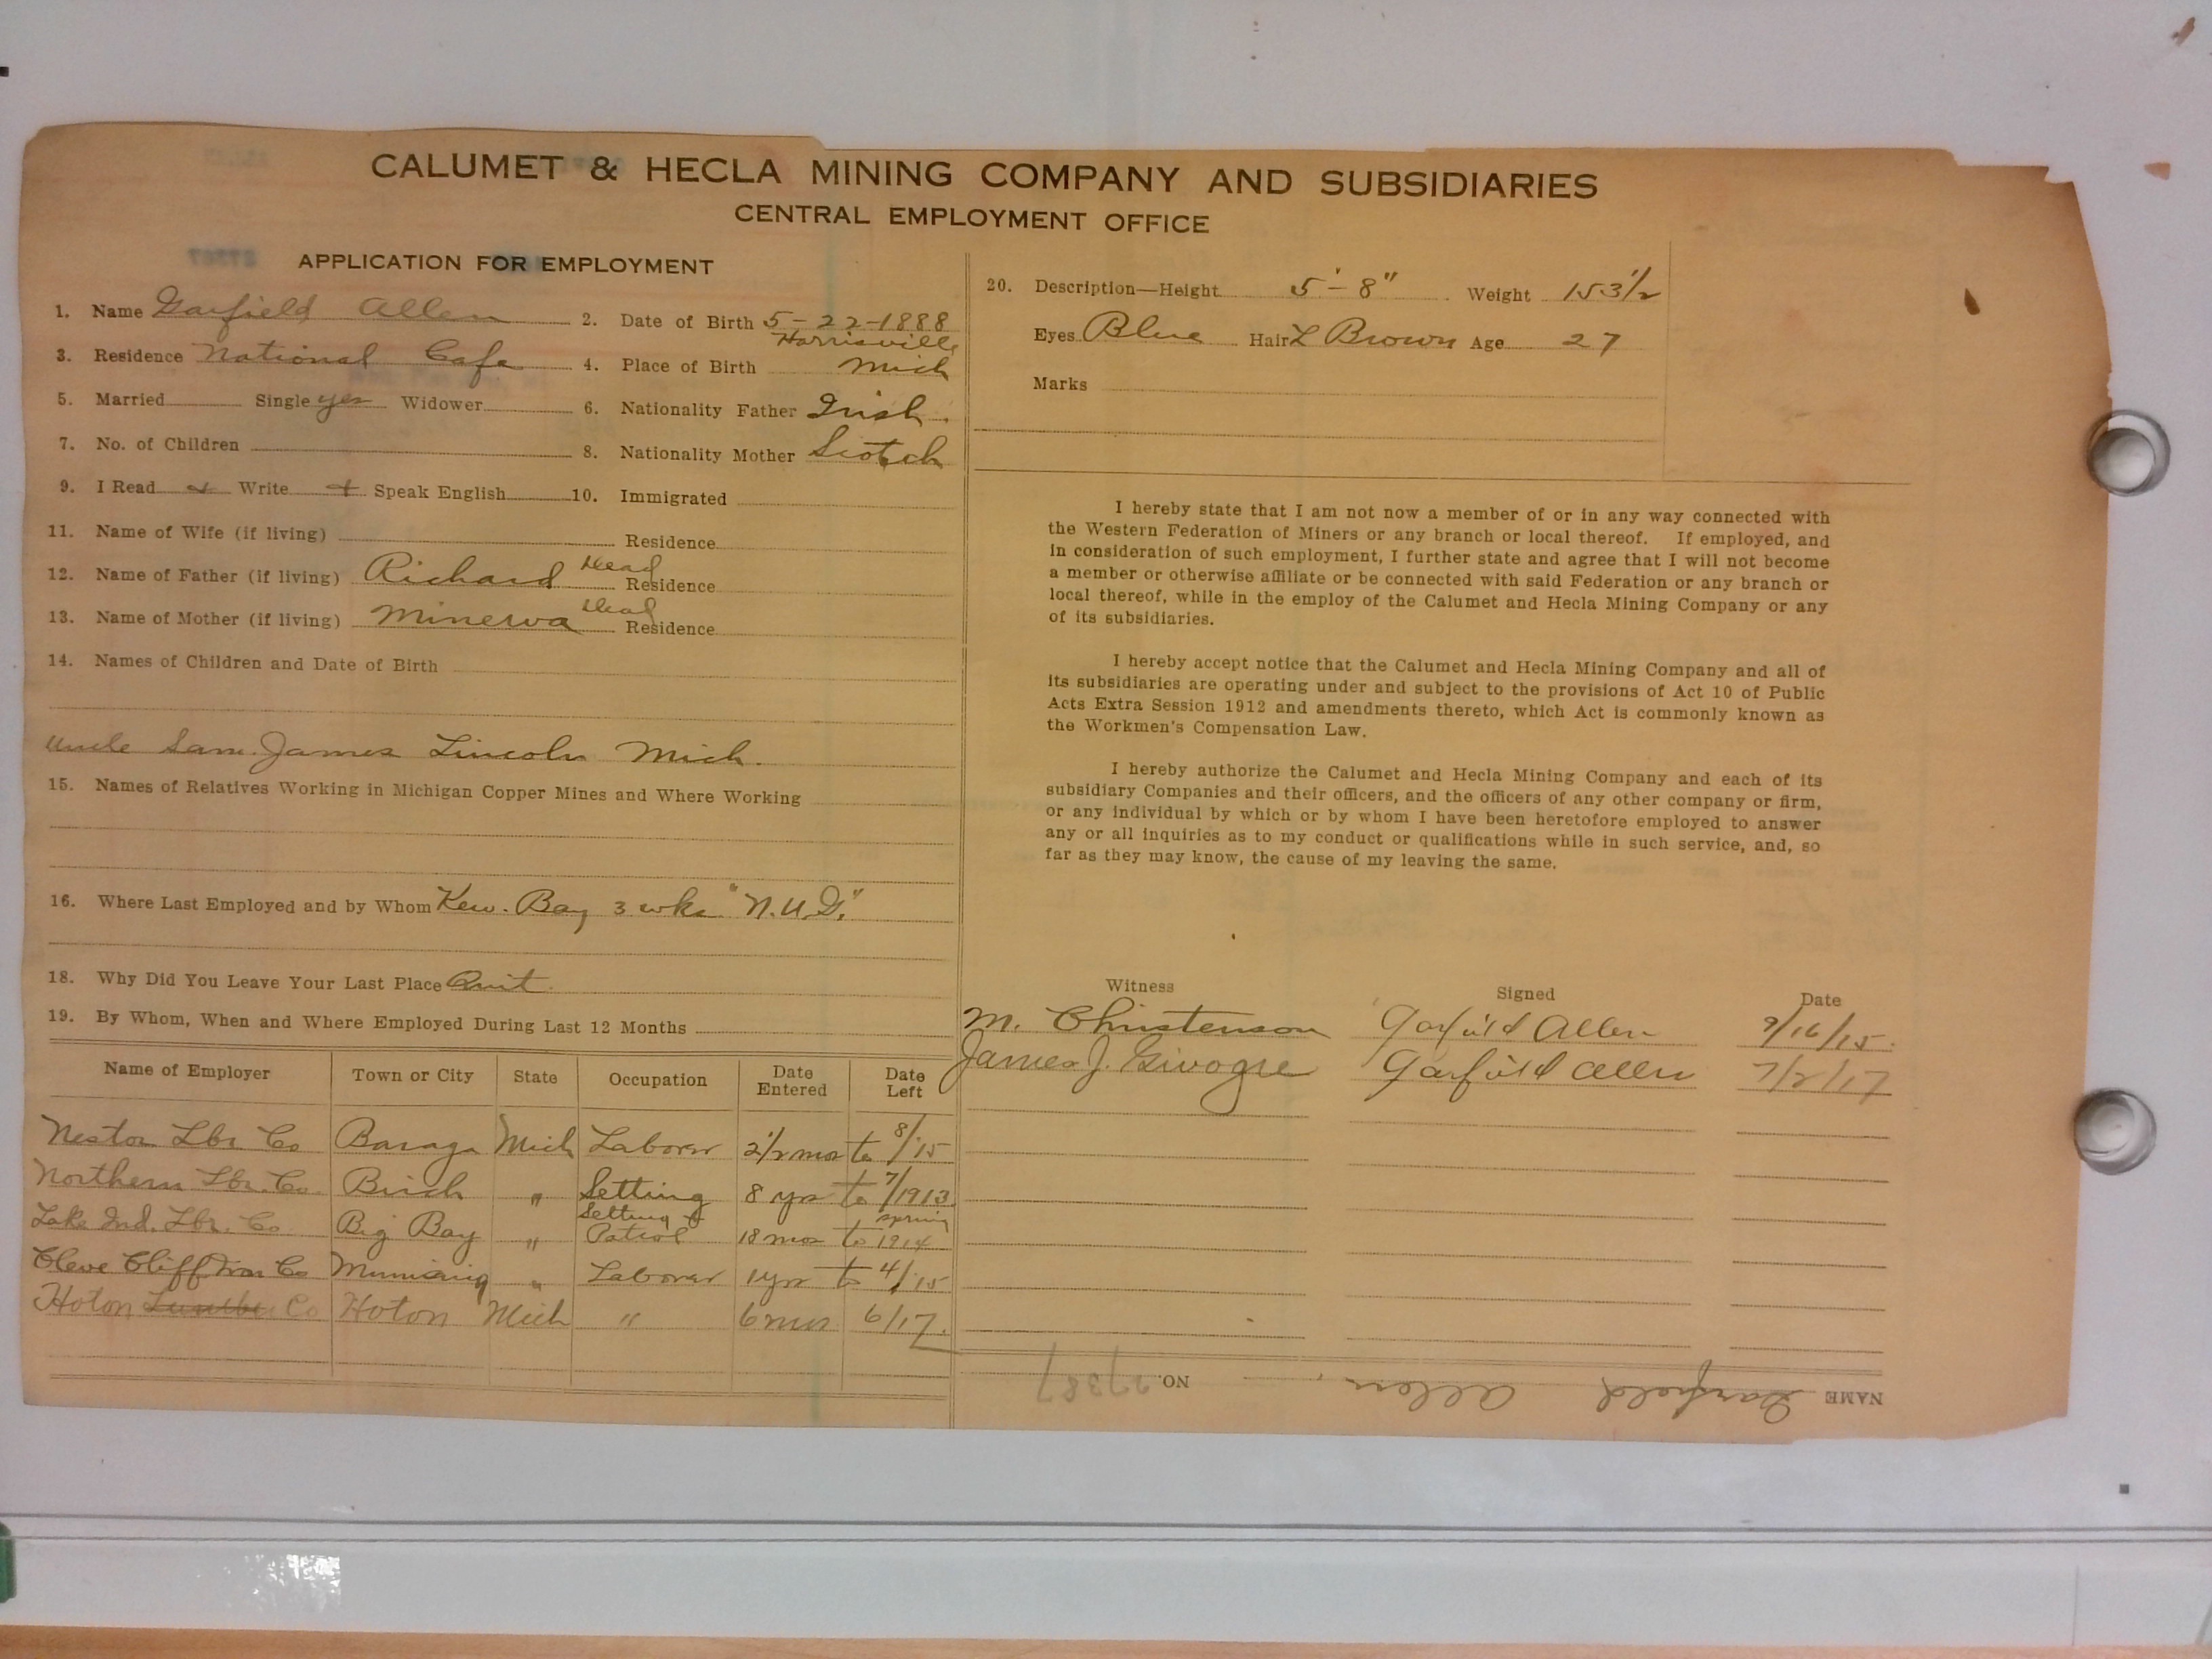 CALUMET & HECLA MINING COMPANY AND SUBSIDIARIES
CENTRAL EMPLOYMENT OFFICE
APPLICATION FOR EMPLOYMENT
1. Name Garfield Allen 2. Date of Birth 5-22-1888
3. Residence National Cafe 4. Place of Birth Harrisville Mich
5. Married Single yes Widower 6. Nationality Father Irish.
7. No. of Children 8. Nationality Mother Scotch
9. I Read & Write + Speak English 10. Immigrated
11. Name of Wife (if living) Residence
12. Name of Father (if living) Richard Dead Residence
13. Name of Mother (if living) Minerva Dead Residence
14. Names of Children and Date of Birth
Uncle Sam James Lincoln Mich.
15. Names of Relatives Working in Michigan Copper Mines and Where Working
16. Where Last Employed and by Whom Kew. Bay 3 wks "N.U.G."
18. Why Did You Leave Your Last Place Quit.
19. By Whom, When and Where Employed During Last 12 Months
Name of Employer Town or City State Occupation Date Entered Date Left
Nestor Lbr Co Baraga Mich Laborer 2 1/2 mos to 8/15
Northern Lbr. Co. Birch " Setting 8 yrs to 7/1913
Lake Ind. Lbr. Co Big Bay " Setting & Patrol 18 mos to spring 1914
Cleve Cliff Iron Co Munising " Laborer 1 yr to 4/15
Hoton Lumber Co Hoton Mich " 6 mos 6/17.
20. Description—Height 5'-8" Weight 153 1/2
Eyes Blue Hair L Brown Age 27
Marks
I hereby state that I am not now a member of or in any way connected with
the Western Federation of Miners or any branch or local thereof. If employed, and
in consideration of such employment, I further state and agree that I will not become
a member or otherwise affiliate or be connected with said Federation or any branch or
local thereof, while in the employ of the Calumet and Hecla Mining Company or any
of its subsidiaries.
I hereby accept notice that the Calumet and Hecla Mining Company and all of
its subsidiaries are operating under and subject to the provisions of Act 10 of Public
Acts Extra Session 1912 and amendments thereto, which Act is commonly known as
the Workmen's Compensation Law.
I hereby authorize the Calumet and Hecla Mining Company and each of its
subsidiary Companies and their officers, and the officers of any other company or firm,
or any individual by which or by whom I have been heretofore employed to answer
any or all inquiries as to my conduct or qualifications while in such service, and, so
far as they may know, the cause of my leaving the same.
Witness Signed Date
M. Christenson Garfield Allen 9/16/15.
James J. Garfield Allen 7/2/17
NAME Garfield Allen, NO. 27387